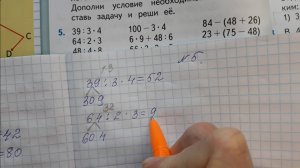 Дополни условие необходим
ставь задачу и реши её.
5. 39 : 3 · 4 100 − 3 · 4 84 − (48 + 26)
64 : 2 · 3 6 · 9 + 48 : 6 23 + (75 − 48)
48 : 4 · 8
ким:
1) 3
№5.
13
39 : 3 · 4 = 52
30 9
32
64 : 2 · 3 = 9
60 4
42
=80